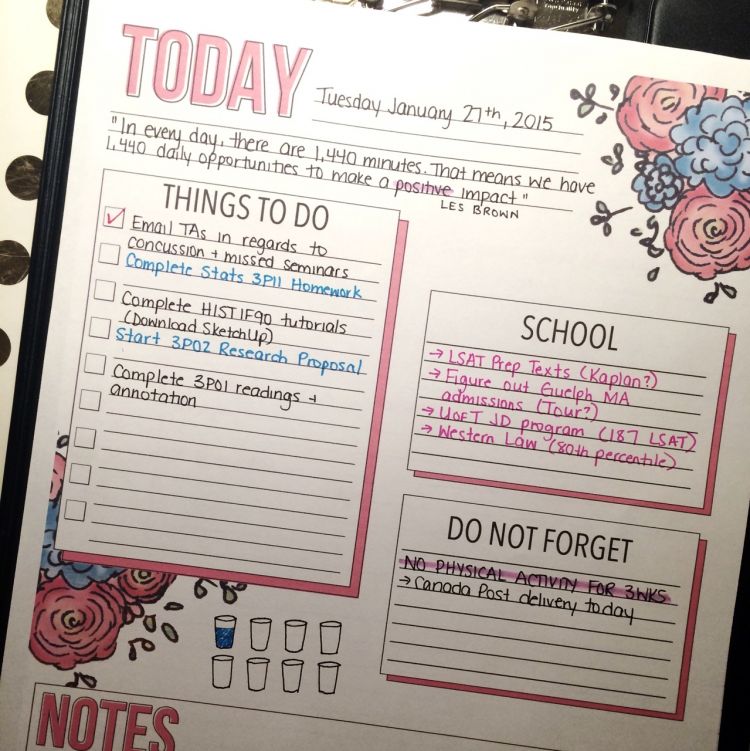 TODAY
Tuesday January 27th, 2015
"In every day, there are 1,440 minutes. That means we have
1,440 daily opportunities to make a positive impact"
LES BROWN
THINGS TO DO
Email TAs in regards to
concussion + missed seminars
Complete Stats 3P11 Homework
Complete HIST1F90 tutorials
(Download SketchUp)
Start 3P02 Research Proposal
Complete 3P01 readings +
annotation
SCHOOL
→ LSAT Prep Texts (Kaplan?)
→ Figure out Guelph MA
admissions (Tour?)
→ UofT JD program (187 LSAT)
→ Western Law (80th percentile)
DO NOT FORGET
NO PHYSICAL ACTIVITY FOR 3WKS
→ Canada Post delivery today
NOTES